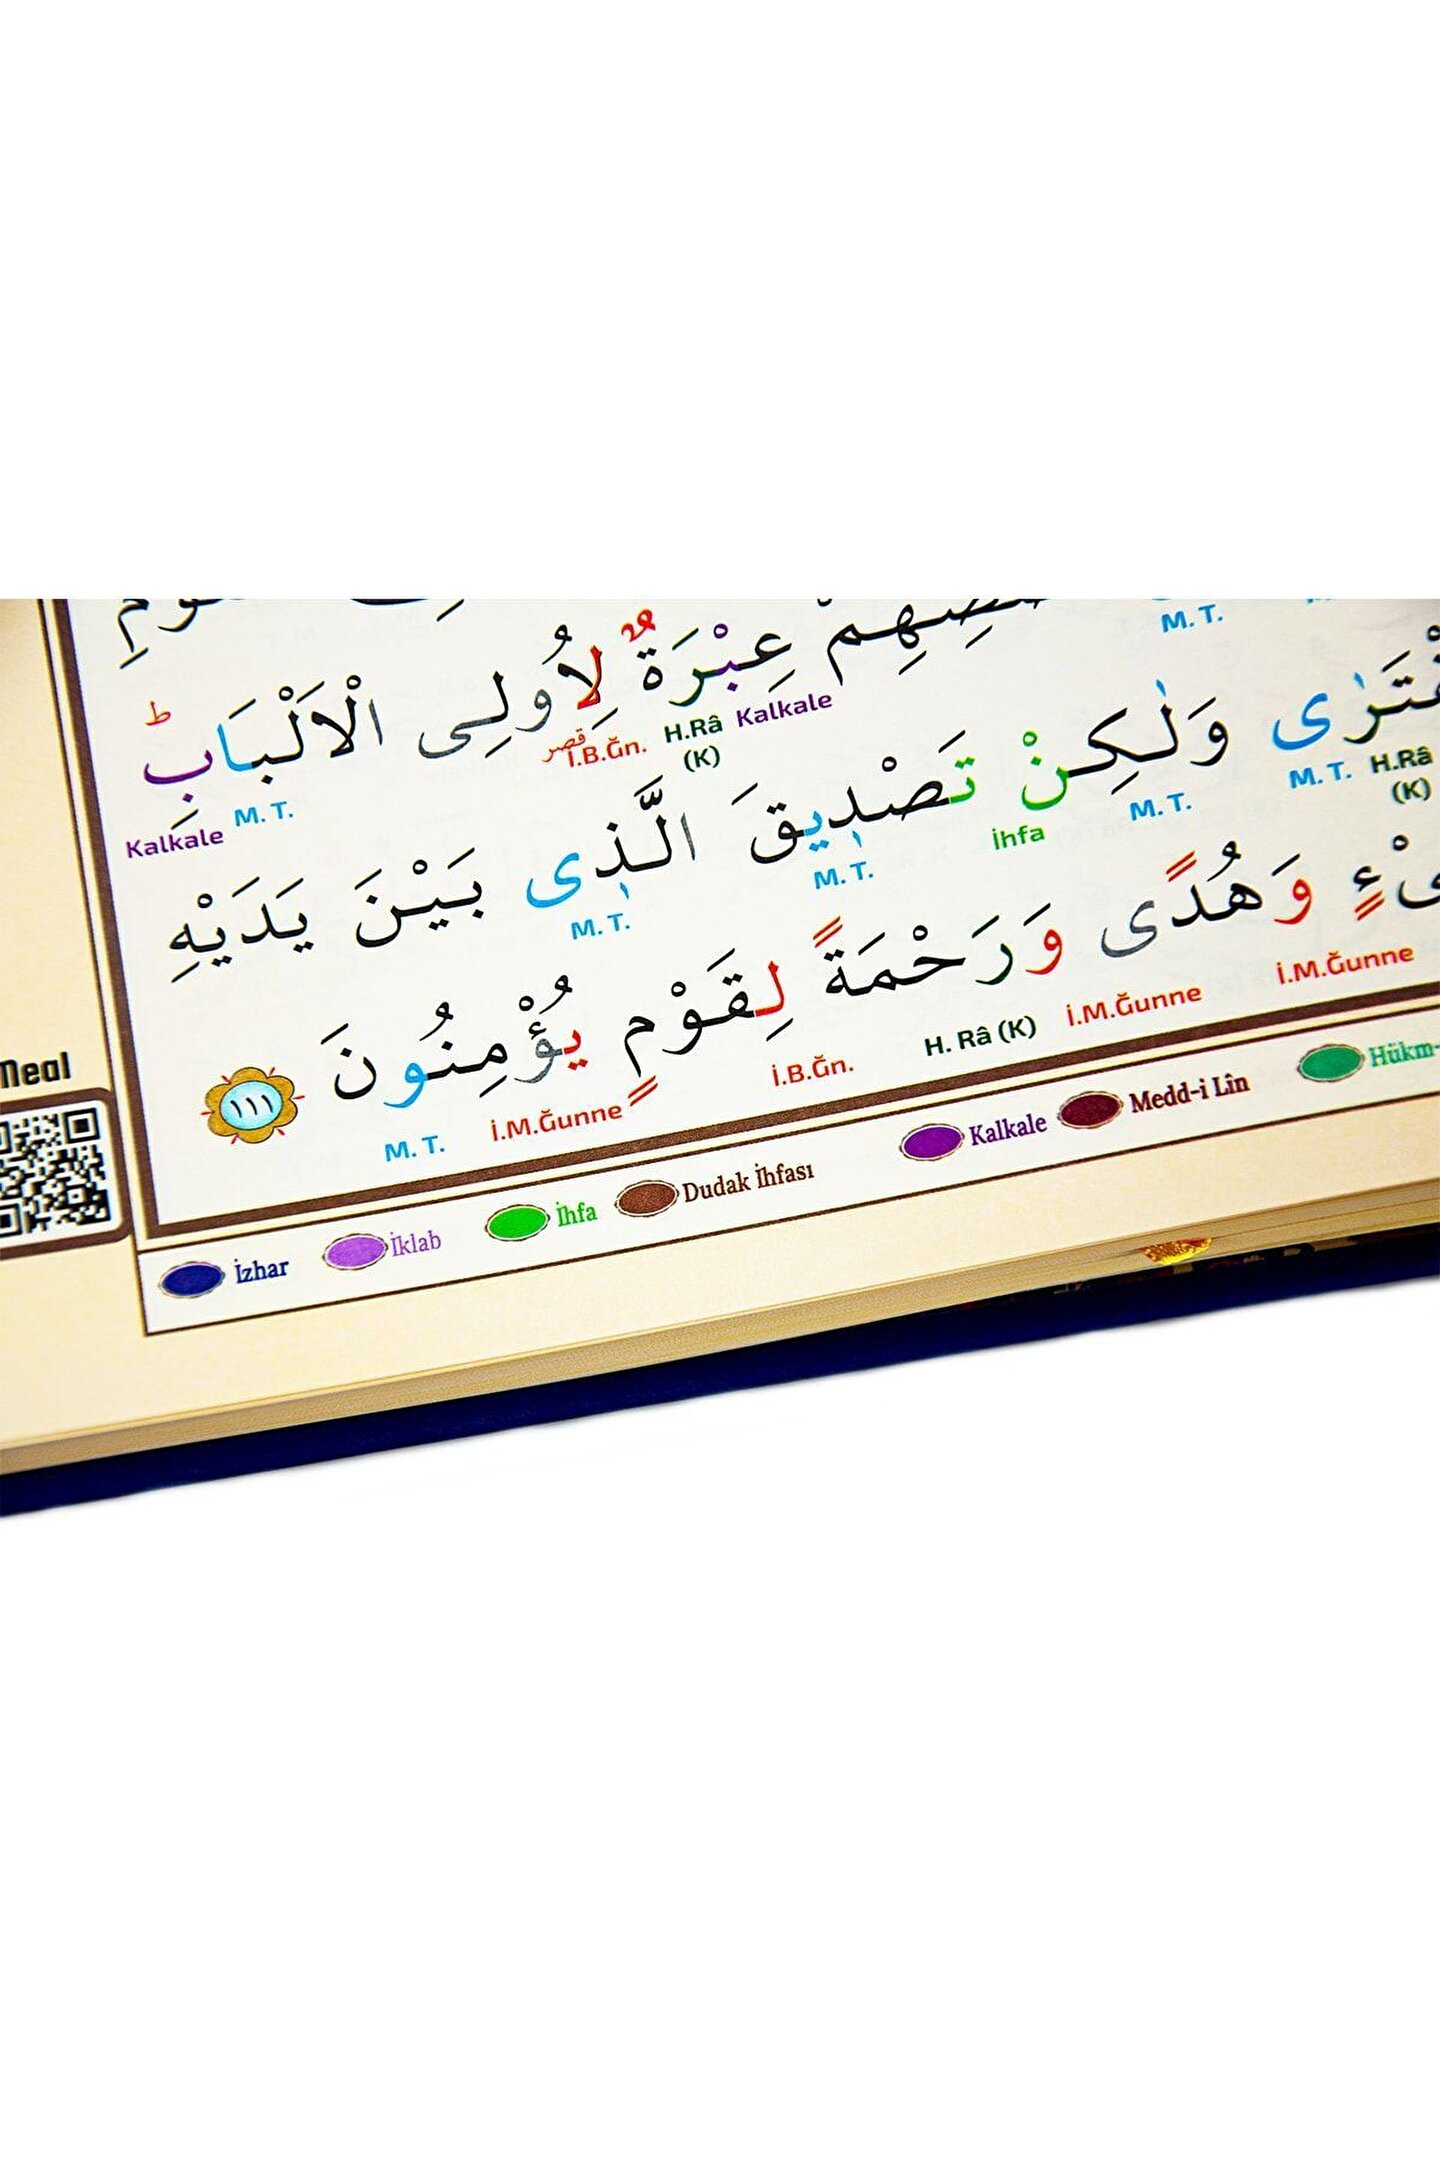 قَصَصِهِمْ عِبْرَةٌ لِاُولِى الْاَلْبَابِ ط
M. T.
قصر
Kalkale H.Râ (K) İ.B.Ğn. M. T. Kalkale
وَلٰكِنْ تَصْدٖيقَ الَّذٖى بَيْنَ يَدَيْهِ
M. T. H.Râ (K) M. T. İhfa M. T. M. T.
وَهُدًى وَرَحْمَةً لِقَوْمٍ يُؤْمِنُونَ ١١١
İ.M.Ğunne İ.M.Ğunne H. Râ (K) İ.B.Ğn. İ.M.Ğunne M. T.
Meal
İzhar İklab İhfa Dudak İhfası Kalkale Medd-i Lîn